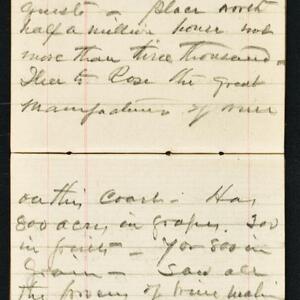 guests – place worth
half a million house not
more than three thousand –
Then to Rose the great
manufacturer of wine
on this Coast – Has
800 acres in grapes. 300
in fruits – 700 800 in
Grain – Saw all
the process of wine makin